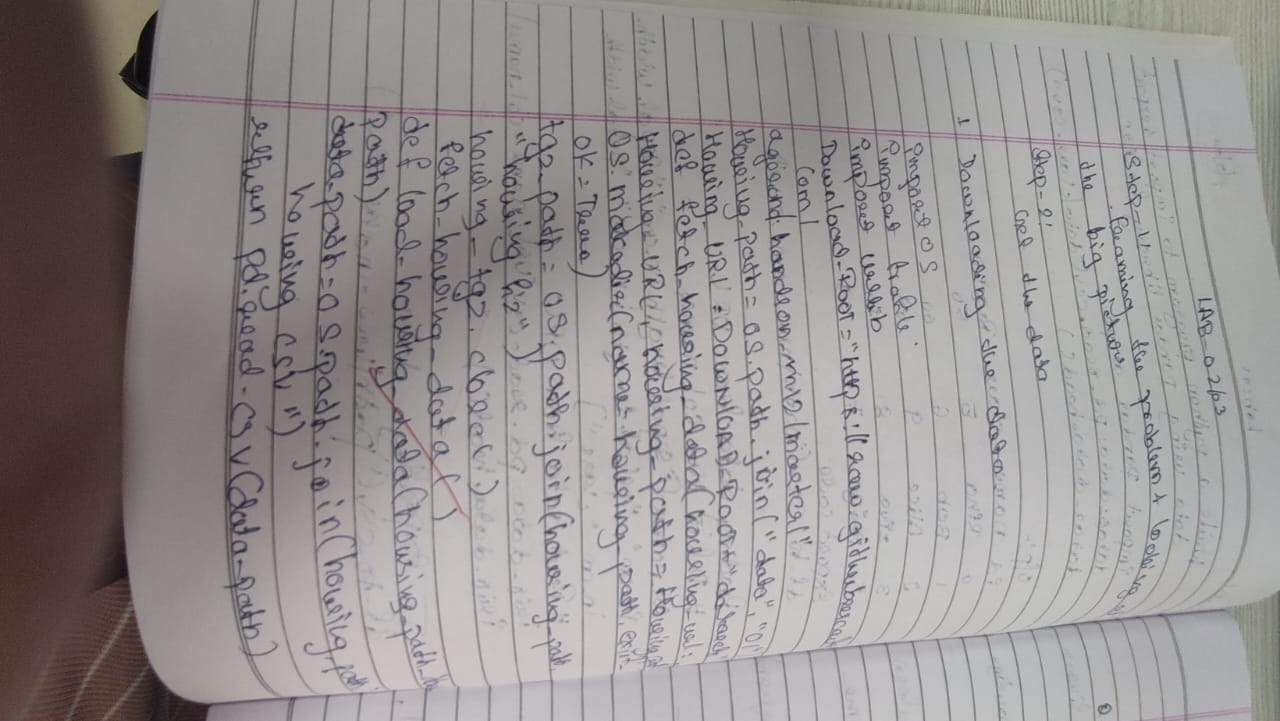 LAB 02/03
Step-1:
Framing the problem & looking at
the big picture
Step-2:
Get the data
1 Downloading the data
import OS
import tarfile
import urllib
Download-Root = "https://raw.githubuserc
com/
ageron/handson-ml2/master/"
Housing-path = OS.path.join("data", "01")
Housing-URL = DownLOAD-Root + "dataset
def fetch-housing-data(housing-url =
Housing-URL, housing-path = Housing-pa
OS.makedadirs(name=housing-path, exist-
ok = True)
tgz-path = OS.path.join(housing-path
"housing.tgz")
housing-tgz.close()
fetch-housing-data()
def load-housing-data(housing-path=ho
path)
data-path = OS.path.join(housing-path
housing csv")
return pd.read-csv(data-path)